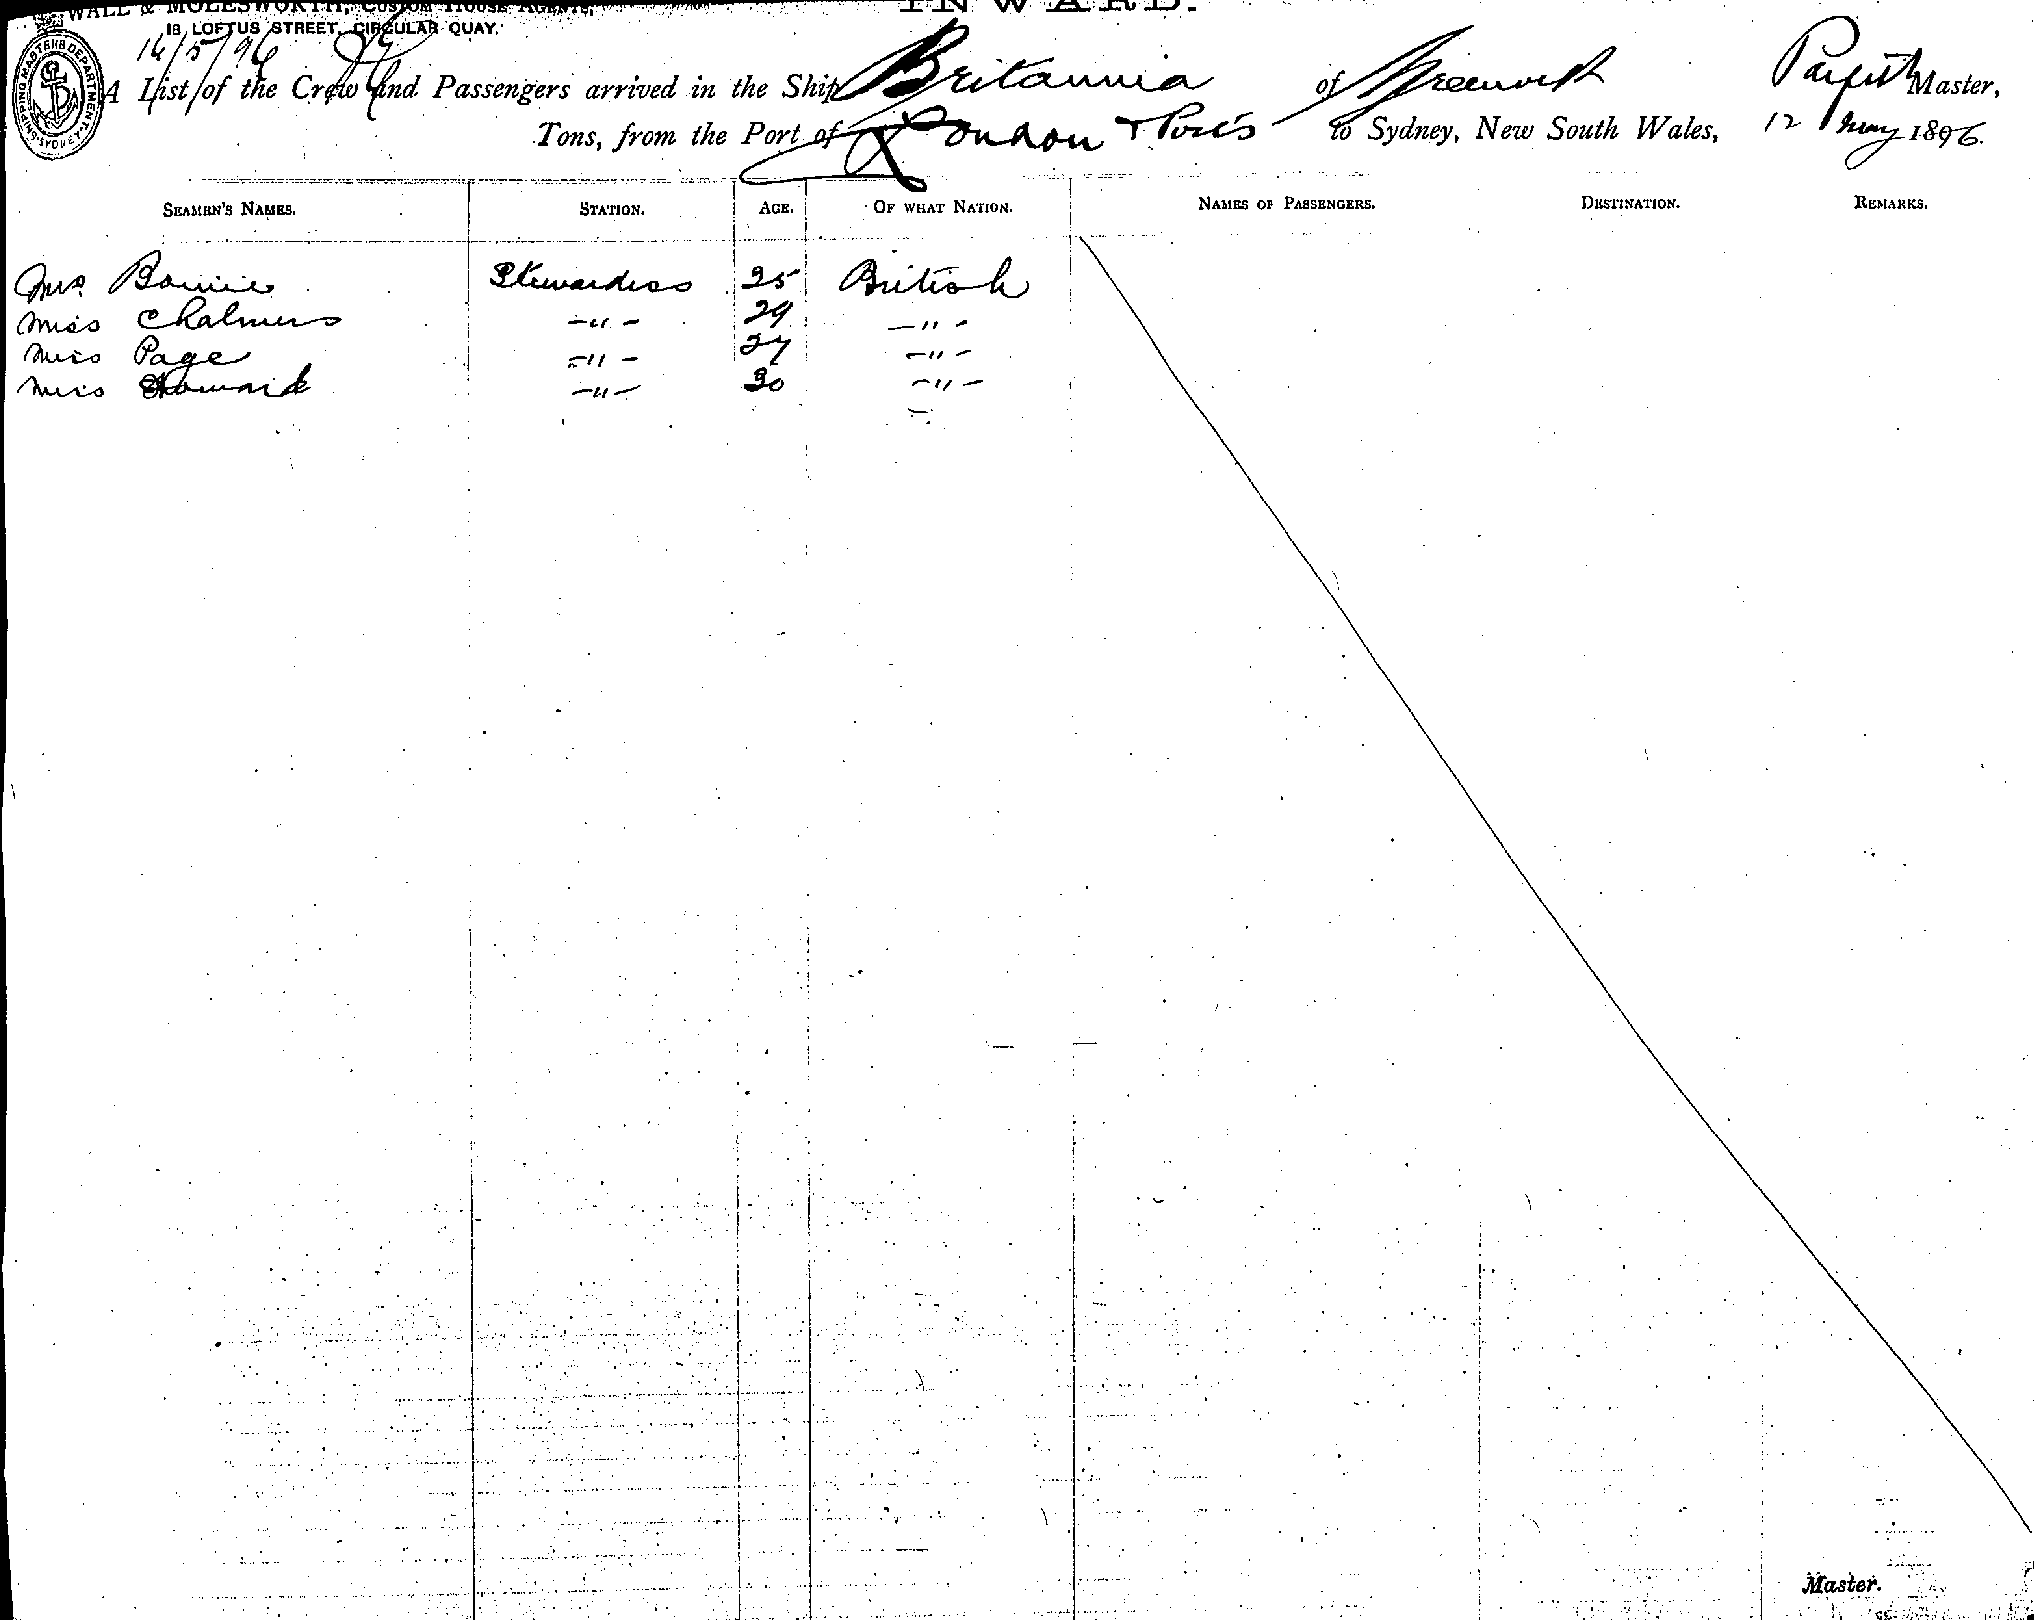 WALL & MOLESWORTH, CUSTOM HOUSE AGENTS,
INWARD.
18 LOFTUS STREET, CIRCULAR QUAY.
SHIPPING MASTERS DEPARTMENT SYDNEY
A List of the Crew and Passengers arrived in the Ship Britannia of Greenock Master,
Tons, from the Port of London & Ports to Sydney, New South Wales, 12 May 1896.
SEAMEN'S NAMES. STATION. AGE. OF WHAT NATION. NAMES OF PASSENGERS. DESTINATION. REMARKS.
Mrs. Stewardess 25 British
Miss Chalmers -"- 29 -"-
Miss Page -"- 27 -"-
Miss Howard -"- 30 -"-
Master.